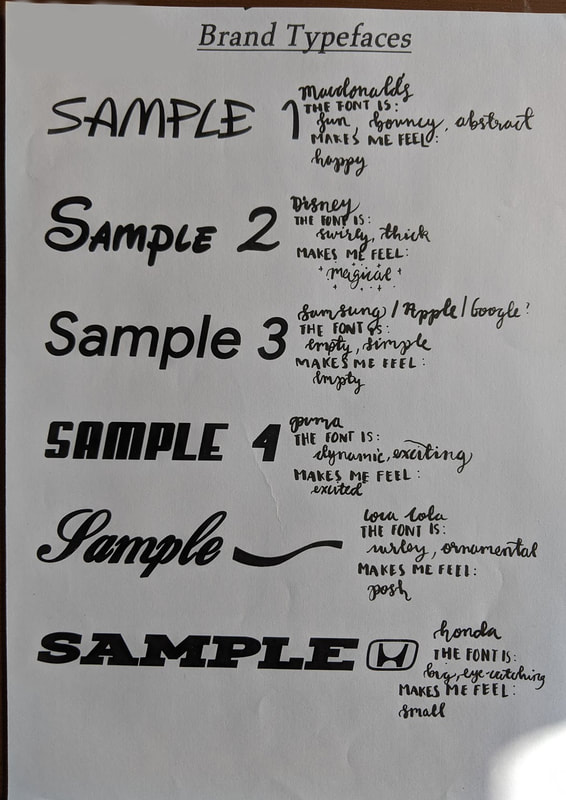 Brand Typefaces
SAMPLE 1
Macdonald's
THE FONT IS:
fun, bouncy, abstract
MAKES ME FEEL:
happy
SAMPLE 2
Disney
THE FONT IS:
swirly, thick
MAKES ME FEEL:
magical
Sample 3
Samsung/Apple/Google?
THE FONT IS:
empty, simple
MAKES ME FEEL:
empty
SAMPLE 4
puma
THE FONT IS:
dynamic, exciting
MAKES ME FEEL:
excited
Sample
coca cola
THE FONT IS:
curley, ornamental
MAKES ME FEEL:
posh
SAMPLE
honda
THE FONT IS:
big, eye-catching
MAKES ME FEEL:
small